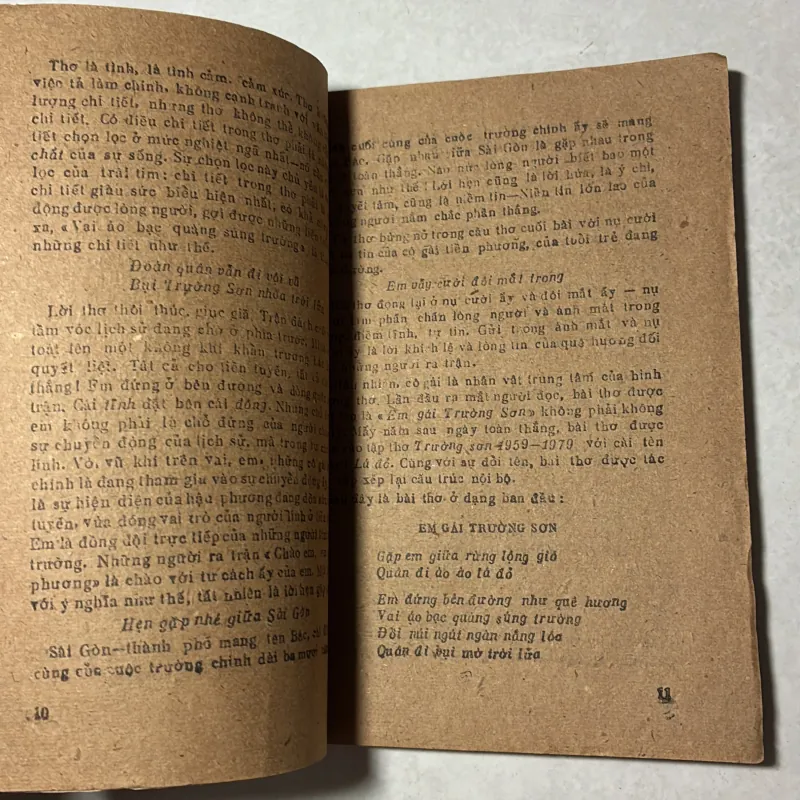 Thơ là tình, là tình cảm, cảm xúc. Thơ
việc tả làm chính, không cạnh tranh với
lượng chi tiết, nhưng thơ không thể
chi tiết. Có điều chi tiết trong thơ phải là
tiết chọn lọc ở mức nghiệt ngã nhất—
chất của sự sống. Sự chọn lọc này chủ yếu
lọc của trái tim: chi tiết trong thơ phải
chi tiết giàu sức biểu hiện nhất, có khi
động được lòng người, gợi được những
xa, «Vai áo bạc quàng súng trường» là
những chi tiết như thế.
Đoàn quân vẫn đi vội vã
Bụi Trường Sơn nhòa trời lửa
Lời thơ thôi thúc, giục giã. Trận đánh
tầm vóc lịch sử đang chờ ở phía trước.
toát lên một không khí khẩn trương
quyết liệt. Tất cả cho tiền tuyến, tất cả
thắng! Em đứng ở bên đường và dòng
trận. Cái tĩnh đặt bên cái động. Nhưng chỗ
em không phải là chỗ đứng của người
sự chuyển động của lịch sử, mà trong tư
lính. Với vũ khí trên vai, em, những cô
chính là đang tham gia vào sự chuyển động
là sự hiện diện của hậu phương đang dồn
tuyến, vừa đóng vai trò của người lính ở
Em là đồng đội trực tiếp của những người
trường. Những người ra trận «Chào em,
phương» là chào với tư cách ấy của em.
với ý nghĩa như thế, tất nhiên là lời hẹn
Hẹn gặp nhé giữa Sài Gòn
Sài Gòn—thành phố mang tên Bác,
cùng của cuộc trường chinh dài ba mươi
10
cuối cùng của cuộc trường chinh ấy sẽ mang
Bác. Gặp nhau giữa Sài Gòn là gặp nhau trong
toàn thắng. Náo nức lòng người biết bao một
hẹn như thế! Lời hẹn cũng là lời hứa, là ý chí,
quyết tâm, cũng là niềm tin—Niềm tin lớn lao của
người nắm chắc phần thắng.
thơ bừng nở trong câu thơ cuối bài với nụ cười
tin của cô gái tiền phương, của tuổi trẻ đang
đường.
Em vẫy cười đôi mắt trong
thơ đọng lại ở nụ cười ấy và đôi mắt ấy — nụ
làm phấn chấn lòng người và ánh mắt trong
điềm tĩnh, tự tin. Gửi trong ánh mắt và nụ
ấy là lời khích lệ và lòng tin của quê hương đối
những người ra trận.
nhiên, cô gái là nhân vật trung tâm của hình
thơ. Lần đầu ra mắt người đọc, bài thơ được
là «Em gái Trường Sơn» không phải không
Mấy năm sau ngày toàn thắng, bài thơ được
vào tập thơ Trường sơn 1959—1979 với cái tên
Lá đỏ. Cùng với sự đổi tên, bài thơ được tác
xếp lại cấu trúc nội bộ.
đây là bài thơ ở dạng ban đầu:
EM GÁI TRƯỜNG SƠN
Gặp em giữa rừng lộng gió
Quân đi ào ào lá đỏ
Em đứng bên đường như quê hương
Vai áo bạc quàng súng trường
Đồi núi ngút ngàn nắng lóa
Quân đi bụi mờ trời lửa
11